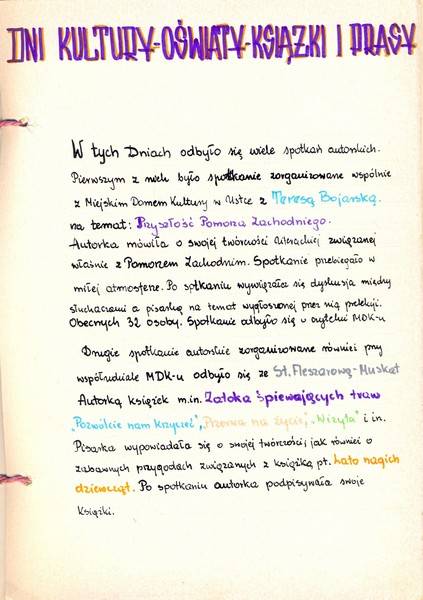 DNI KULTURY-OŚWIATY-KSIĄŻKI I PRASY
W tych Dniach odbyło się wiele spotkań autorskich.
Pierwszym z nich było spotkanie zorganizowane wspólnie
z Miejskim Domem Kultury w Ustce z Teresą Bojarską.
na temat: Przyszłość Pomorza Zachodniego.
Autorka mówiła o swojej twórczości literackiej związanej
właśnie z Pomorzem Zachodnim. Spotkanie przebiegało w
miłej atmosferze. Po spotkaniu wywiązała się dyskusja między
słuchaczami a pisarką na temat wygłoszonej przez nią prelekcji.
Obecnych 32 osoby. Spotkanie odbyło się w czytelni MDK-u
Drugie spotkanie autorskie zorganizowane również przy
współudziale MDK-u odbyło się ze St. Fleszarową-Muskat
Autorką książek m.in. Zatoka śpiewających traw
"Pozwólcie nam krzyczeć", "Przerwa na życie", "Wizyta" i in.
Pisarka wypowiadała się o swojej twórczości, jak również o
zabawnych przygodach związanych z książką pt. Lato nagich
dziewcząt. Po spotkaniu autorka podpisywała swoje
książki.